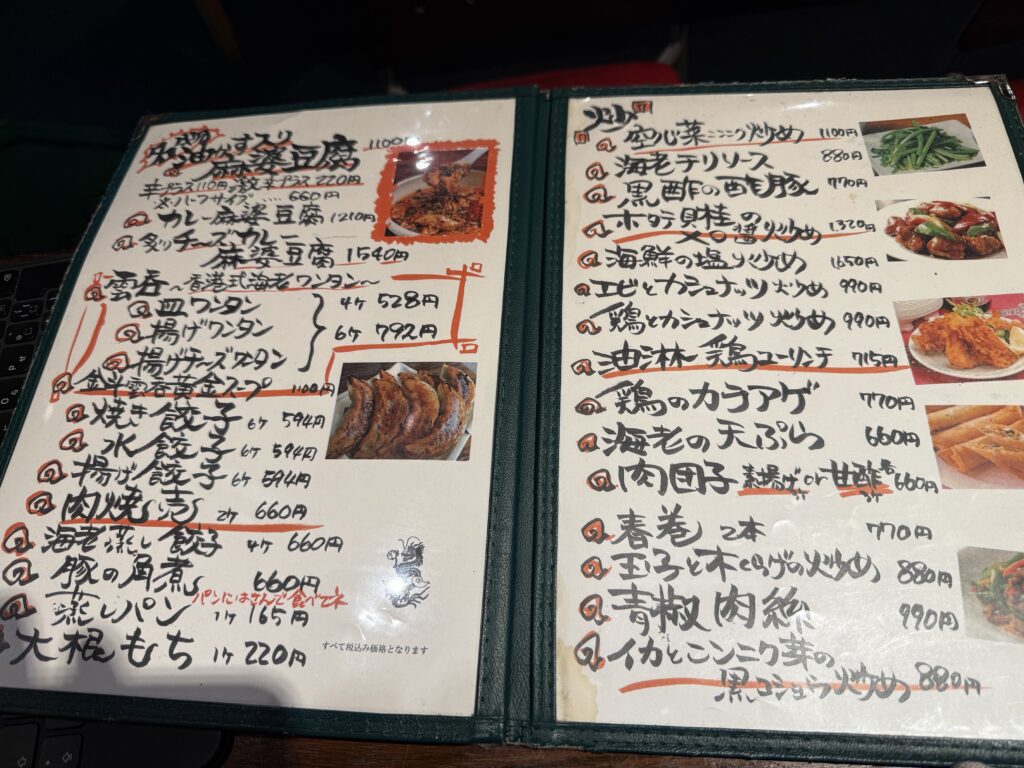 麻婆豆腐 1100円
辛プラス110円
ハーフサイズ… 660円
カレー麻婆豆腐 1210円
炙りチーズカレー
麻婆豆腐 1540円
雲呑 〜香港式海老ワンタン〜
皿ワンタン
揚げワンタン
揚げチーズワンタン
4ヶ 528円
6ヶ 792円
雲呑黄金スープ 1100円
焼き餃子 6ヶ 594円
水餃子 6ヶ 594円
揚げ餃子 6ヶ 594円
肉焼売 2ヶ 660円
海老蒸し餃子 4ヶ 660円
豚の角煮 660円
パンにはさんで食べてネ
蒸しパン 1ヶ 165円
大根もち 1ヶ 220円
すべて税込み価格となります
炒
空心菜ニンニク炒め 1100円
海老チリソース 880円
黒酢の酢豚 770円
ホタテ貝柱の
XO醤炒め 1320円
海鮮の塩炒め 1650円
エビとカシュナッツ炒め 990円
鶏とカシュナッツ炒め 990円
油淋鶏ユーリンチ 715円
鶏のカラアゲ 770円
海老の天ぷら 660円
肉団子 素揚げor甘酢 660円
春巻 2本 770円
玉子と木くらげの炒め 880円
青椒肉絲 990円
イカとニンニク芽の
黒コショウ炒め 880円